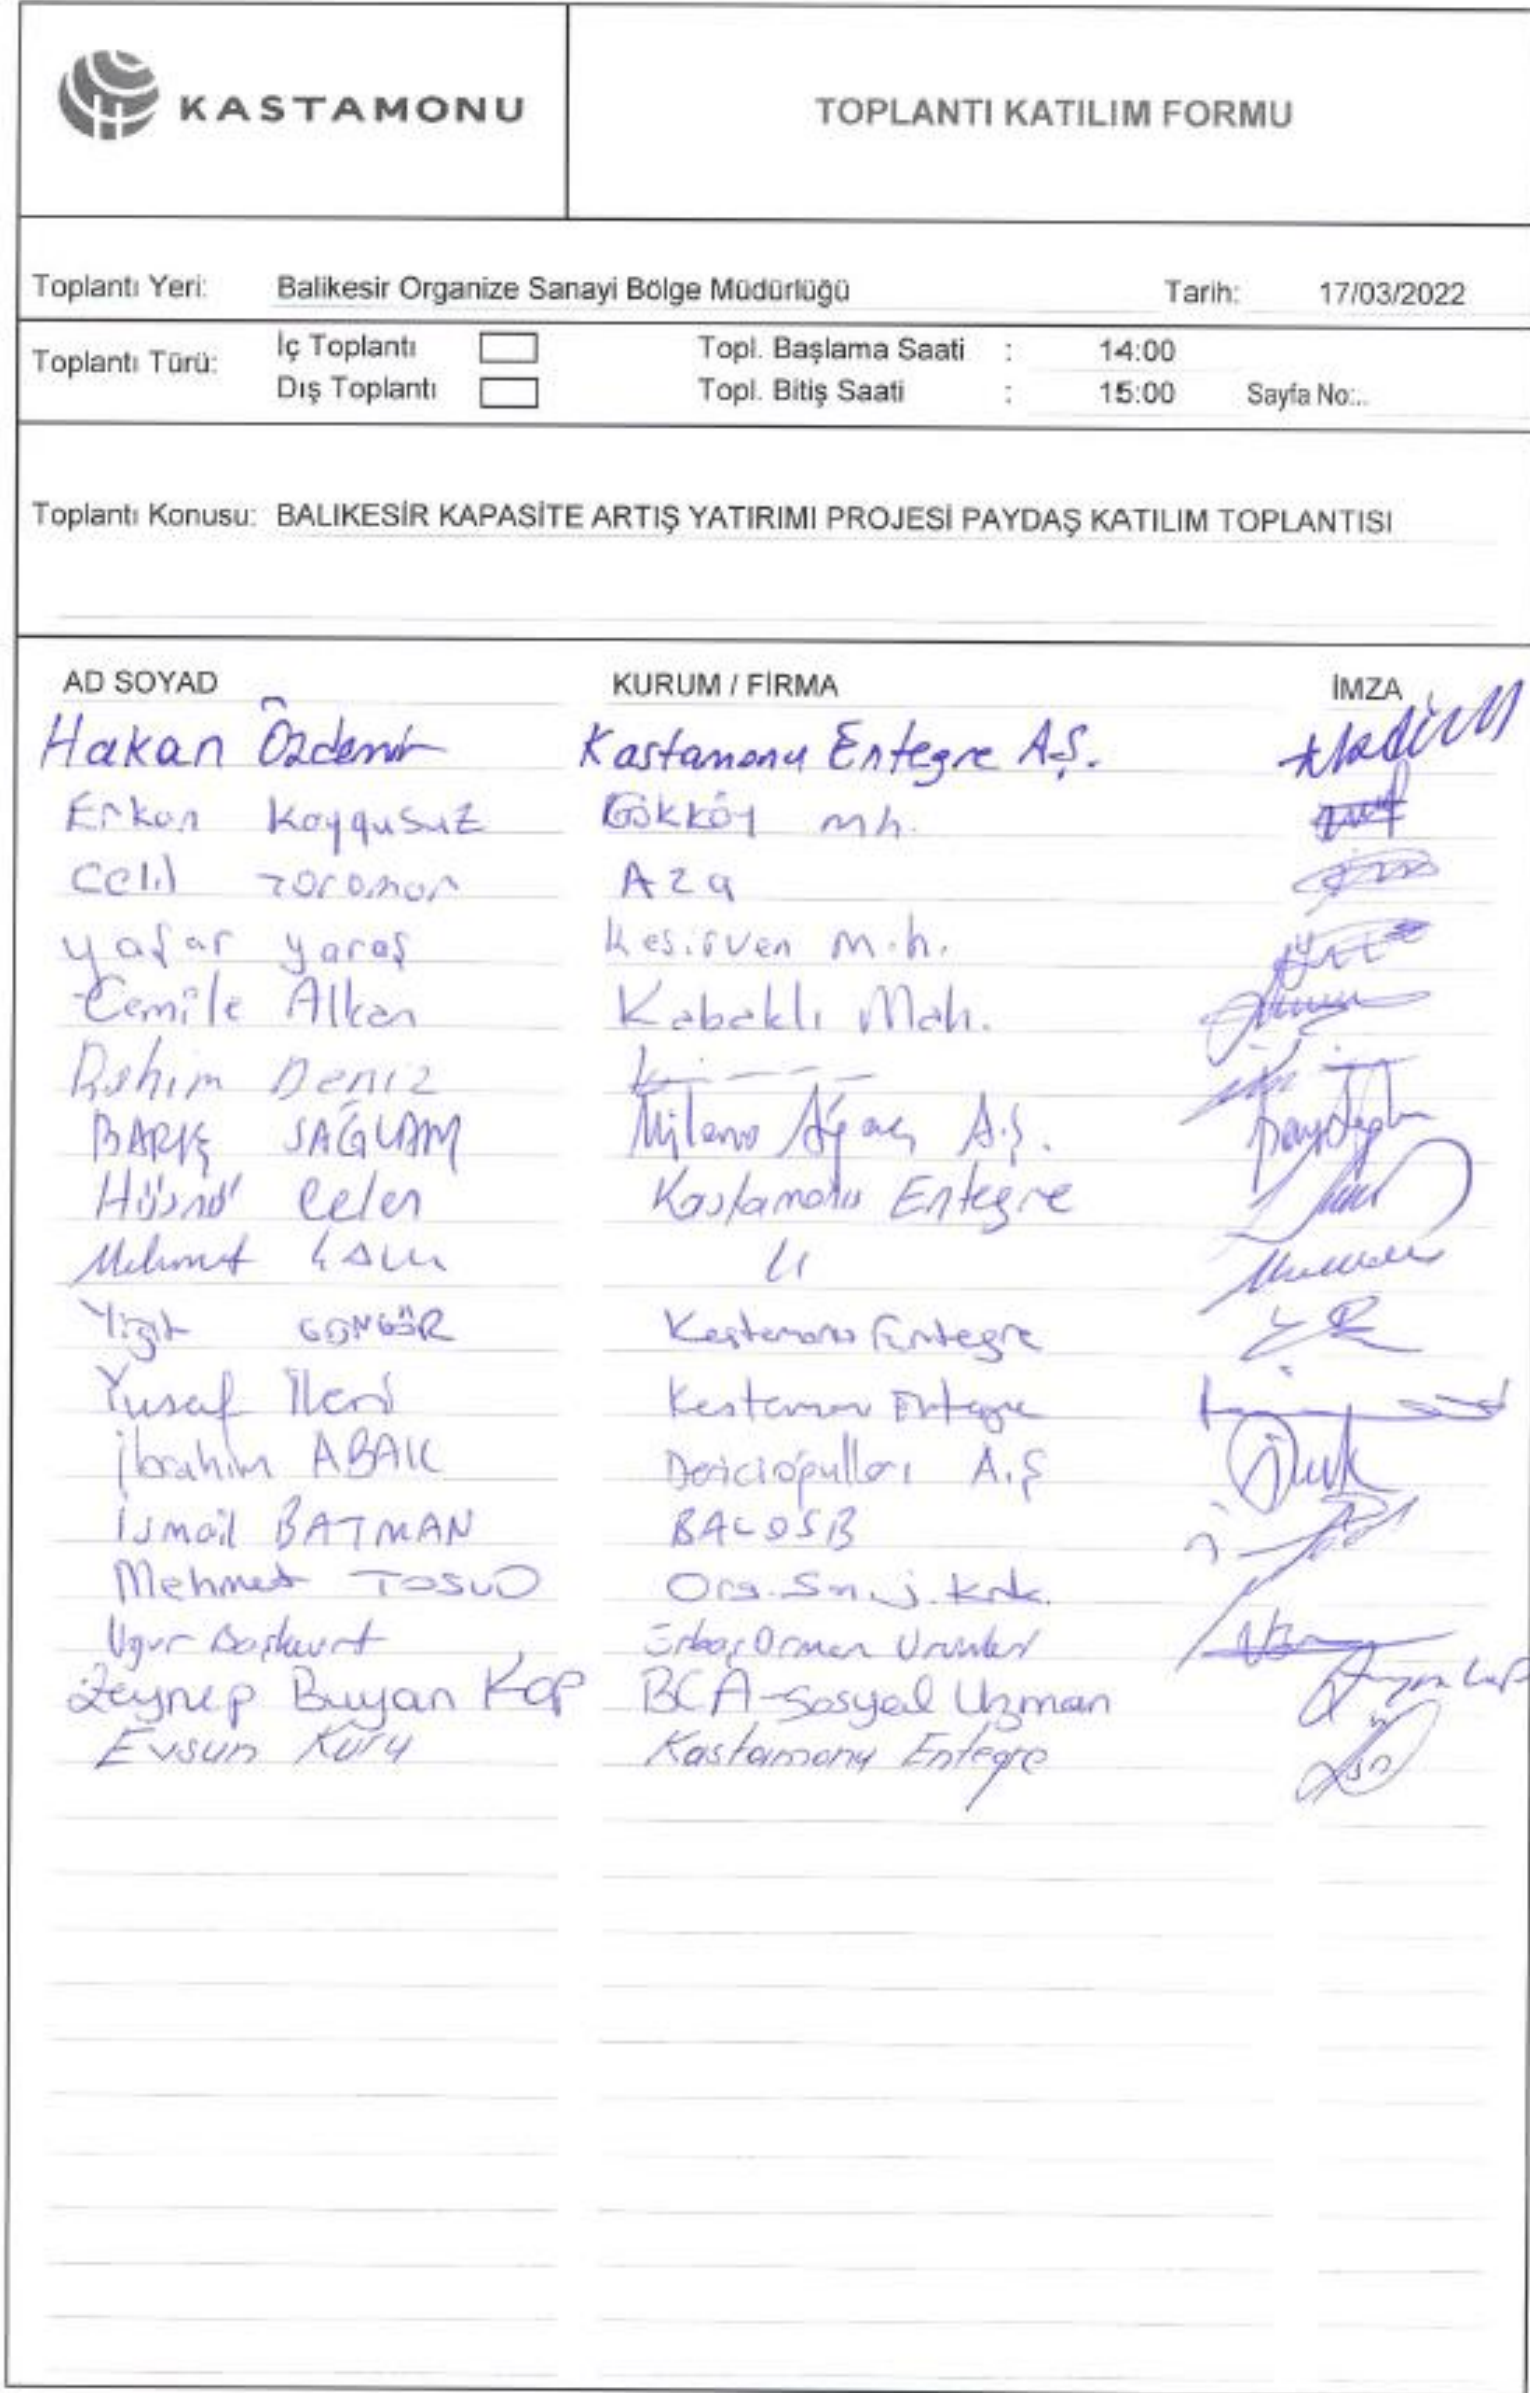 KASTAMONU
TOPLANTI KATILIM FORMU
Toplantı Yeri: Balikesir Organize Sanayi Bölge Müdürlüğü Tarih: 17/03/2022
Toplantı Türü: İç Toplantı Topl. Başlama Saati : 14:00
Dış Toplantı Topl. Bitiş Saati : 15:00 Sayfa No:..
Toplantı Konusu: BALIKESİR KAPASİTE ARTIŞ YATIRIMI PROJESİ PAYDAŞ KATILIM TOPLANTISI
AD SOYAD KURUM / FİRMA İMZA
Hakan Özdemir Kastamonu Entegre A.Ş.
Erkan Kaygusuz Gökköy mh.
Celil Toroman Aza
yaşar yaraş m.h.
Cemile Alkan Kabaklı Mah.
Deniz
BARIŞ SAĞLAM Milano Ağaç A.Ş.
Hüsnü Celen Kastamonu Entegre
Mehmet
Yiğit GÜNGÖR Kastamonu Entegre
Yusuf İleri Kastamonu Entegre
İbrahim ABALI A.Ş
İsmail BATMAN BALOSB
Mehmet TOSUN Org. San.
Uğur Başkurt Orman Ürünleri
Zeynep Buyan Kop BCA-Sosyal Uzman
Evsun Kuru Kastamonu Entegre